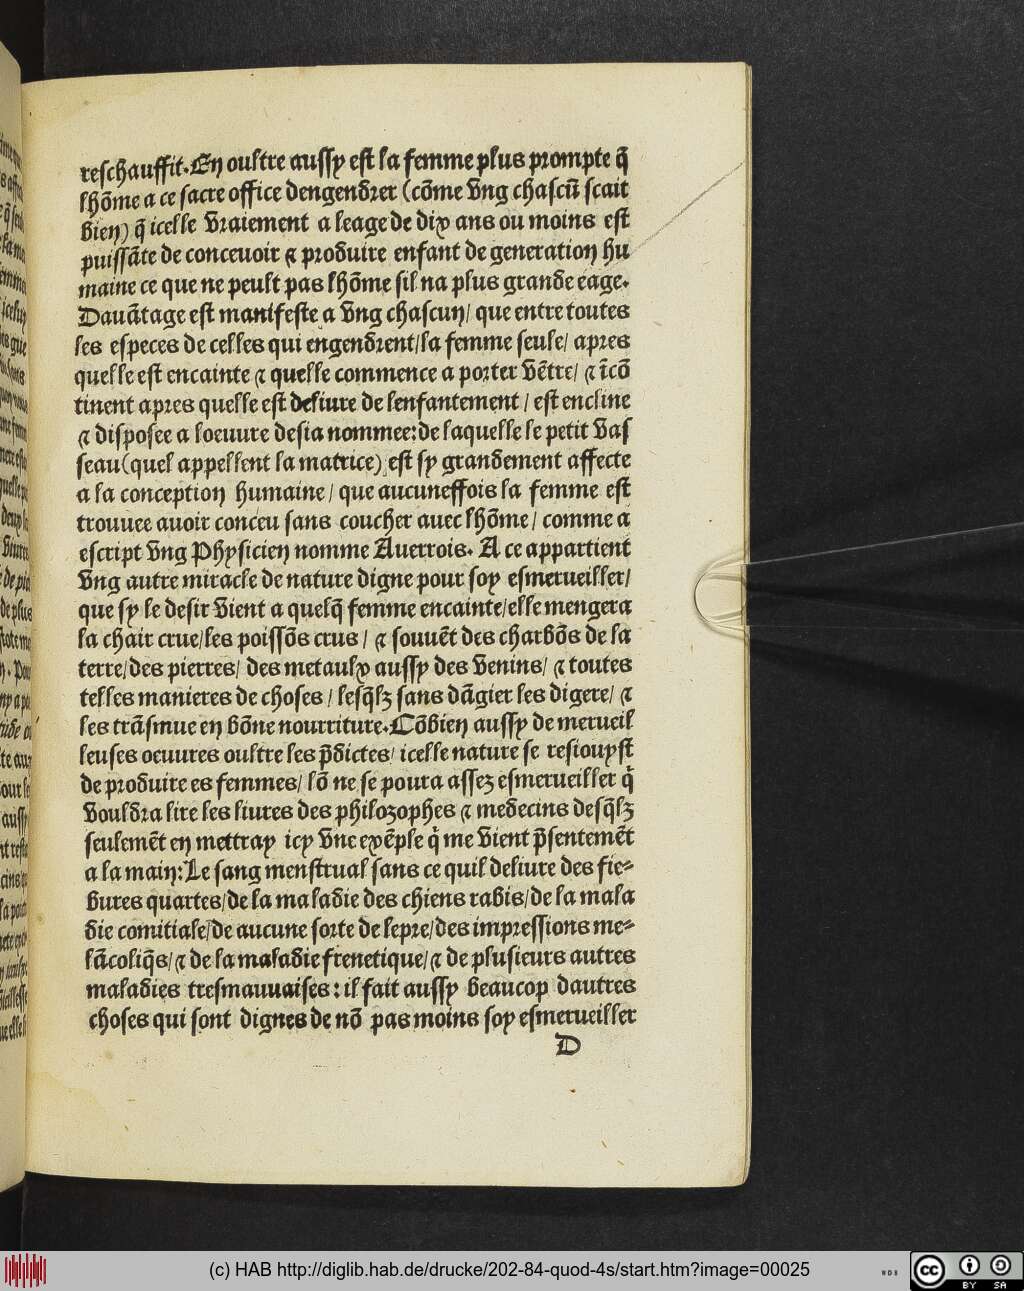 reschauffit. En oultre aussy est la femme plus prompte q̄
lhõme a ce sacre office dengendrer (cõme vng chascũ scait
bien) q̄ icelle vraiement a leage de dix ans ou moins est
puissãte de conceuoir ⁊ produire enfant de generation hu
maine ce que ne peult pas lhõme sil na plus grande eage.
Dauãtage est manifeste a vng chascun/ que entre toutes
les especes de celles qui engendrent/la femme seule/ apres
quelle est encainte ⁊ quelle commence a porter vẽtre/ ⁊ ĩcõ
tinent apres quelle est deliure de lenfantement / est encline
⁊ disposee a loeuure desia nommee: de laquelle le petit vas
seau (quel appellent la matrice) est sy grandement affecte
a la conception humaine / que aucuneffois la femme est
trouuee auoir conceu sans coucher auec lhõme / comme a
escript vng Physicien nomme Auerrois. A ce appartient
vng autre miracle de nature digne pour soy esmerueiller/
que sy le desir vient a quelq̄ femme encainte/elle mengera
la chair crue/les poissõs crus / ⁊ souuẽt des charbõs de la
terre/des pierres/ des metaulx aussy des venins/ ⁊ toutes
telles manieres de choses / lesq̄lz sans dãgier les digere/ ⁊
les trãsmue en bõne nourriture. Cõbien aussy de merueil
leuses oeuures oultre les p̄dictes/ icelle nature se resiouyst
de produire es femmes/ lõ ne se poura assez esmerueiller q̇
vouldra lire les liures des philozophes ⁊ medecins desq̄lz
seulemẽt en mettray icy vne exẽple q̇ me vient p̄sentemẽt
a la main: Le sang menstrual sans ce quil deliure des fie-
bures quartes/de la maladie des chiens rabis/de la mala
die comitiale/de aucune sorte de lepre/des impressions me-
lãcoliq̄s/ ⁊ de la maladie frenetique/ ⁊ de plusieurs autres
maladies tresmauuaises: il fait aussy beaucop dautres
choses qui sont dignes de nõ pas moins soy esmerueiller
D
(c) HAB http://diglib.hab.de/drucke/202-84-quod-4s/start.htm?image=00025
WDB
cc
BY SA